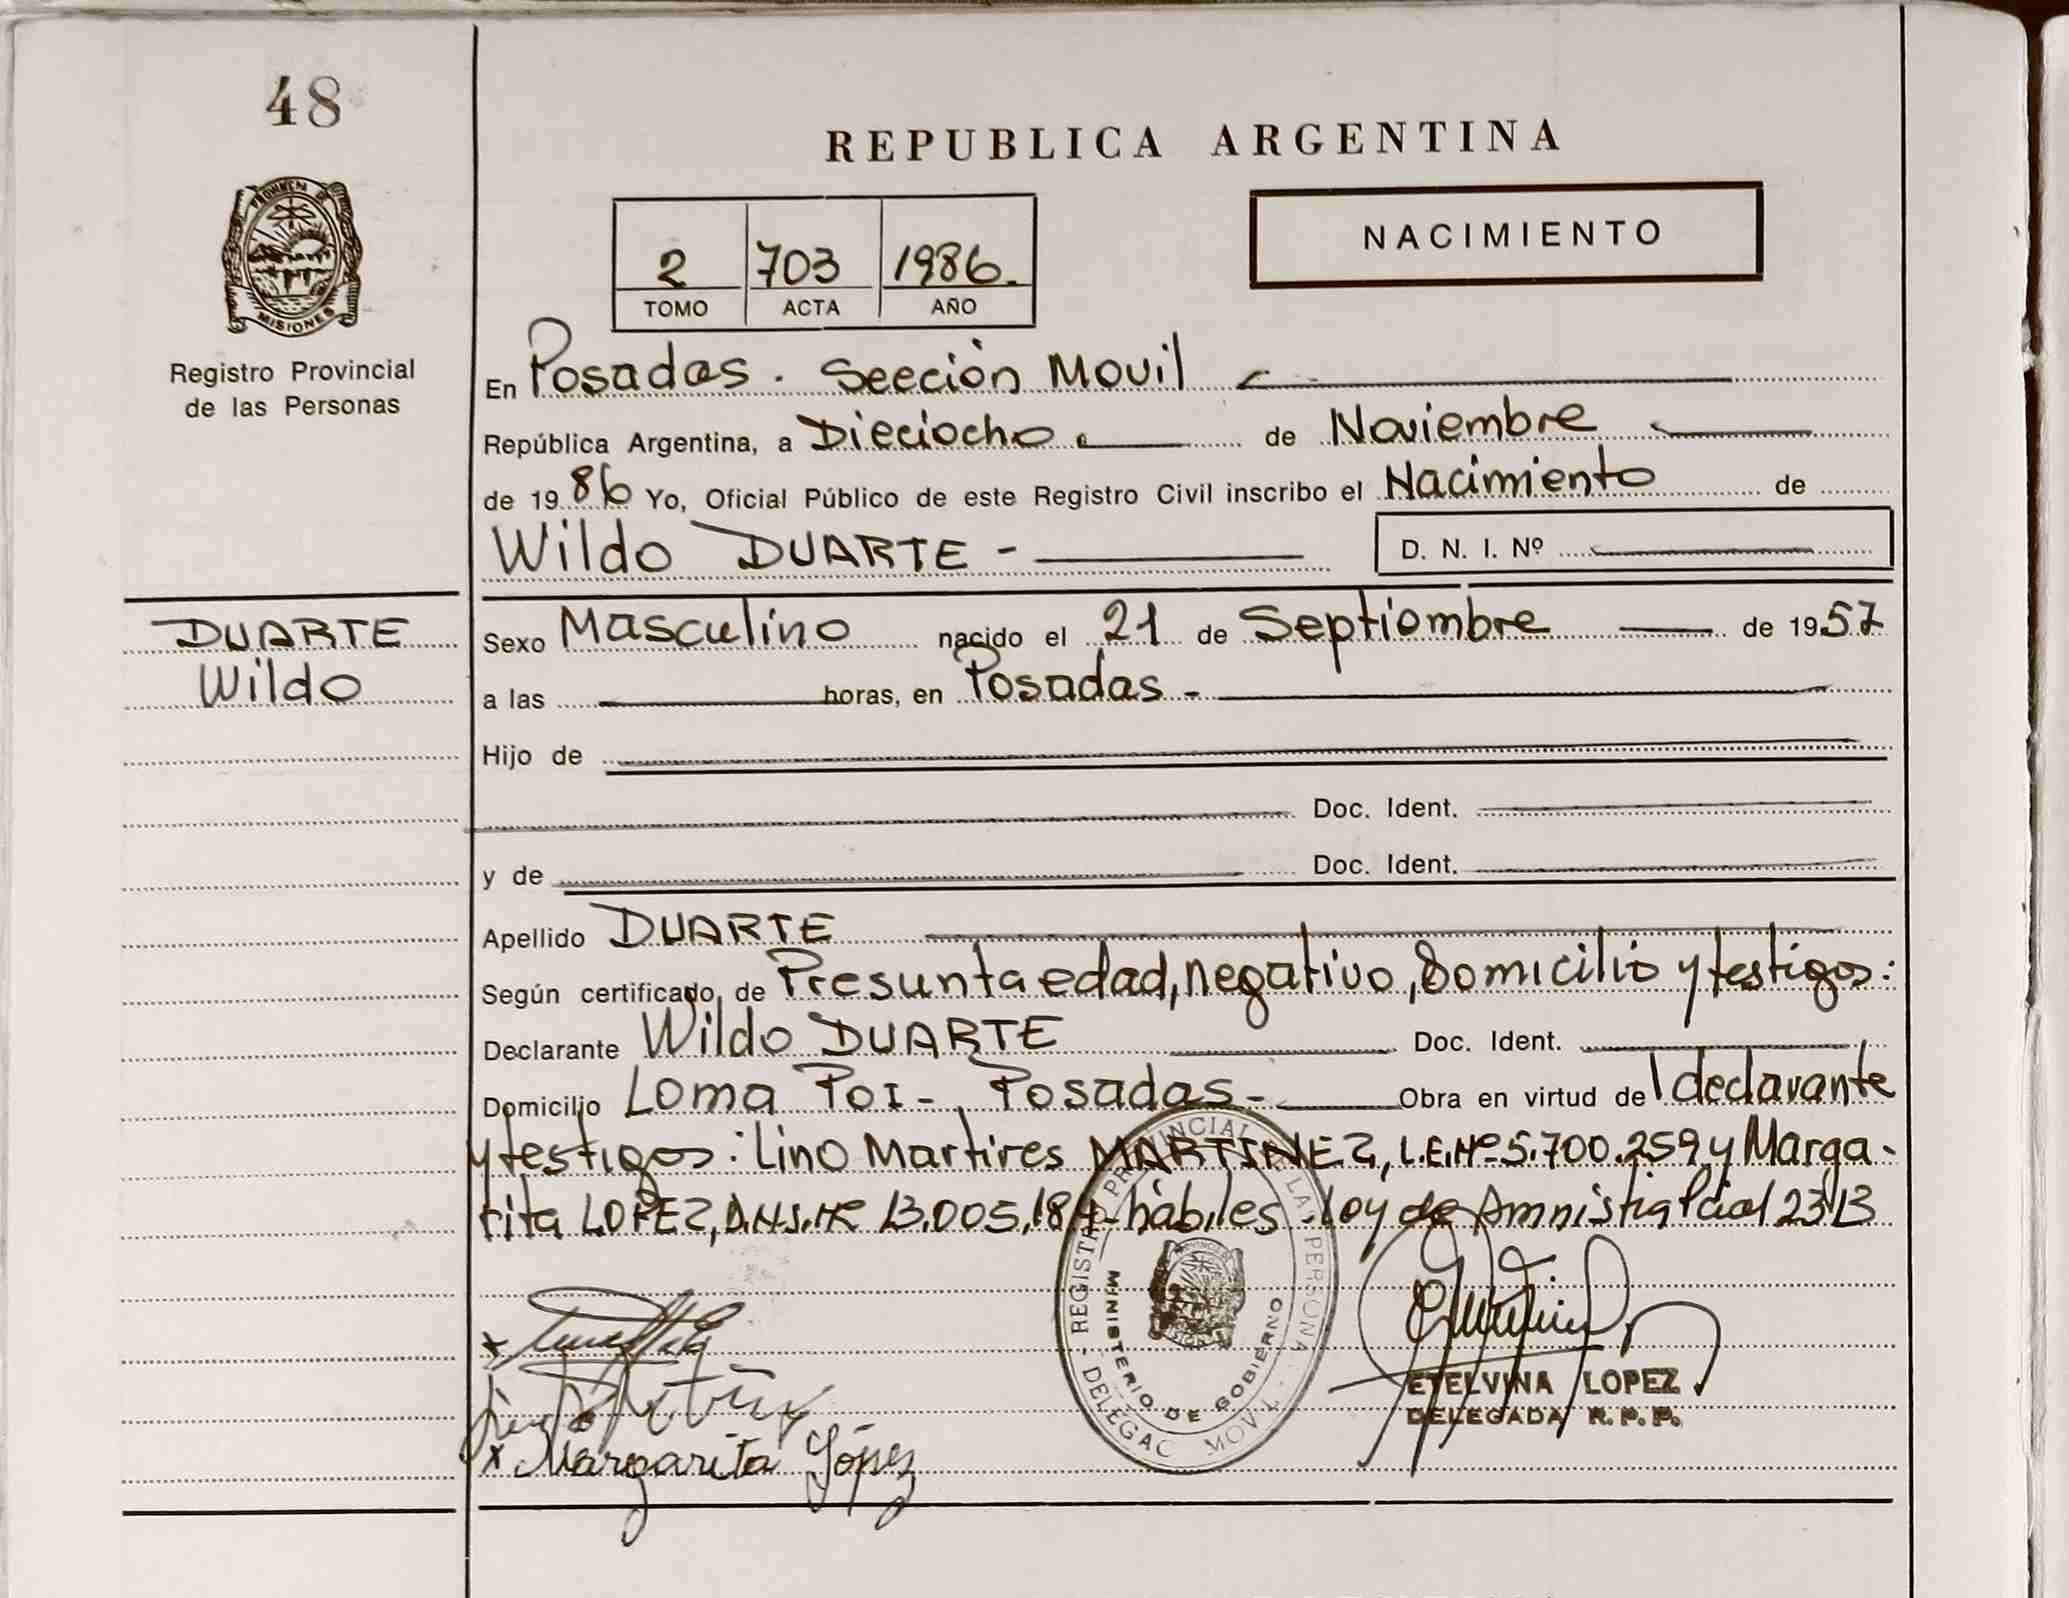 48
REPUBLICA ARGENTINA
PROVINCIA DE
MISIONES
Registro Provincial
de las Personas
2 703 1986.
TOMO ACTA AÑO
NACIMIENTO
En Posadas. Sección Movil
República Argentina, a Dieciocho de Noviembre
de 1986 Yo, Oficial Público de este Registro Civil inscribo el Nacimiento de
Wildo DUARTE - D. N. I. Nº
DUARTE
Wildo
Sexo Masculino nacido el 21 de Septiembre de 1957
a las horas, en Posadas -
Hijo de
Doc. Ident.
y de Doc. Ident.
Apellido DUARTE
Según certificado de Presunta edad, negativo, Domicilio y testigos:
Declarante Wildo DUARTE Doc. Ident.
Domicilio Loma Poi - Posadas - Obra en virtud de l declarante
y testigos: Lino Martires MARTINEZ, L.E.Nº 5.700.259 y Marga-
rita LOPEZ, D.N.I.Nº 13.005.184 - hábiles. Ley de Amnistia Pcial 2313
REGISTRO PROVINCIAL DE LAS PERSONAS
MINISTERIO DE GOBIERNO
DELEGAC MOVIL
ETELVINA LOPEZ
DELEGADA R. P. P.
x Margarita López